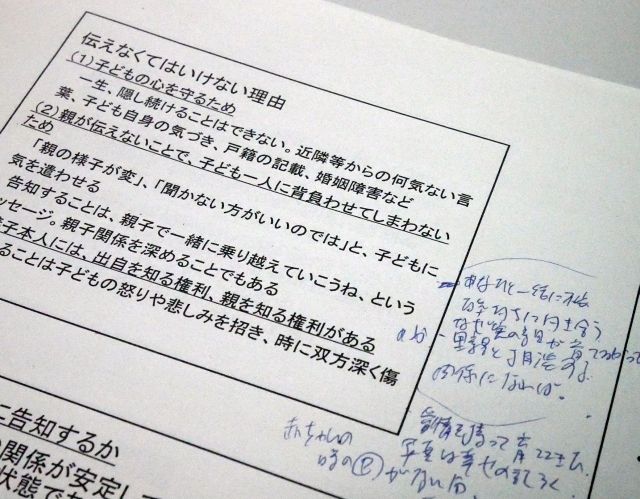 伝えなくてはいけない理由
(1)子どもの心を守るため
一生、隠し続けることはできない。近隣等からの何気ない言
葉、子ども自身の気づき、戸籍の記載、婚姻障害など
(2)親が伝えないことで、子ども一人に背負わせてしまわない
ため
「親の様子が変」、「聞かない方がいいのでは」と、子どもに
気を遣わせる
告知することは、親子で一緒に乗り越えていこうね、という
ッセージ。親子関係を深めることでもある
子本人には、出自を知る権利、親を知る権利がある
ることは子どもの怒りや悲しみを招き、時に双方深く傷
あなたと一緒に
関係になれば。
赤ちゃんの
時の
がない
愛情を持って育ててきた
写真は幸せの記ろく
に告知するか
の関係が安定して
状態で